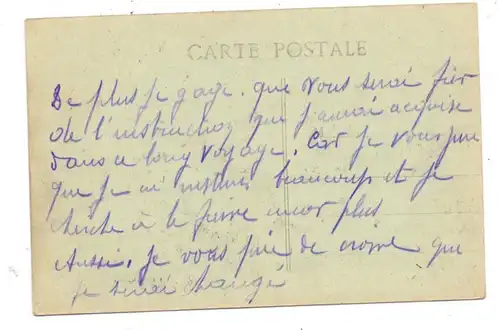 CARTE POSTALE
De plus je gage. que vous serai fier
de l'instruction que j'aurai acquise
dans ce long voyage. Car je vous jure
que je m'instruis beaucoup et je
cherche à le faire encor plus
Aussi, je vous prie de croire que
je serai changé